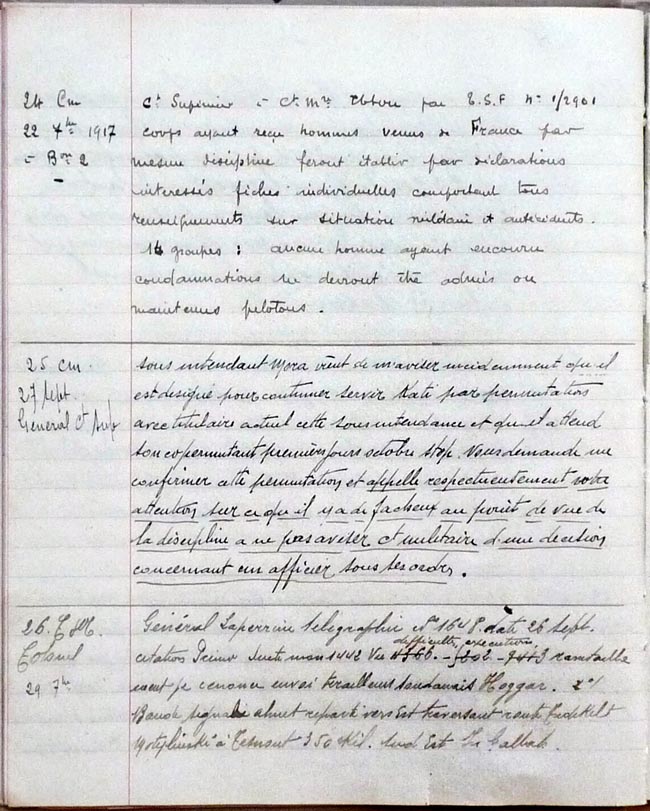 24 Cm
22 7bre 1917
Bon 2
Ct Supérieur à Ct Mre par T.S.F. No 1/2901
corps ayant reçu hommes venus de France par
mesure discipline feront établir par déclarations
interessés fiches individuelles comportant tous
renseignements sur situation militaire et antécédents.
groupes : aucun homme ayant encouru
condamnations ne devront être admis ou
maintenus pelotons.
25 cm.
27 Sept
Général Ct Sup
sous intendant Mera vient de m'aviser incidemment qu'il
est désigné pour continuer servir Kati par permutation
avec titulaire actuel cette sous intendance et qu'il attend
son copermutant premiers jours octobre stop. Vous demande me
confirmer cette permutation et appelle respectueusement votre
attention sur ce qu'il y a de facheux au point de vue de
la discipline a ne pas aviser Ct militaire d'une decision
concernant un officier sous ses ordres.
26. C.M.
Colonel
29 7bre
Général Laperrine télégraphie No 164 P. date 26 Sept.
difficulté exécution
citation Primo Suite mon 1442 Vu ravitaille
ment je renonce envoi tirailleurs Soudanais Hoggar. 2o/
Bande signalée reparti vers Est traversant route
Motylinski à 350 Kil. Sud Est